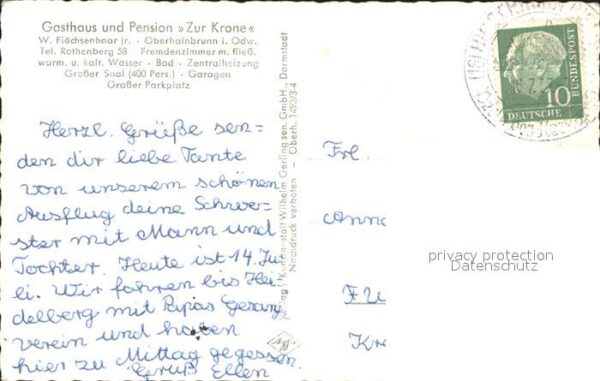 Gasthaus und Pension »Zur Krone«
W. Flächsenhaar jr. · Oberhainbrunn i. Odw.
Tel. Rothenberg 58 · Fremdenzimmer m. fließ.
warm. u. kalt. Wasser · Bad · Zentralheizung
Großer Saal (400 Pers.) · Garagen
Großer Parkplatz
Herzl. Grüße sen=
den dir liebe Tante
von unserem schönen
Ausflug deine Schwe=
ster mit Mann und
Tochter. Heute ist 14. Ju
li. Wir fahren bis Hei
delberg mit Papas Gesang
verein und haben
hier zu Mittag gegessen.
Gruß Ellen
Kunstanstalt Wilhelm Gerling sen. GmbH., Darmstadt
Nachdruck verboten — Oberh. 1493/3-4
Frl.
Anna
Kre
10
DEUTSCHE
BUNDESPOST
privacy protection
Datenschutz